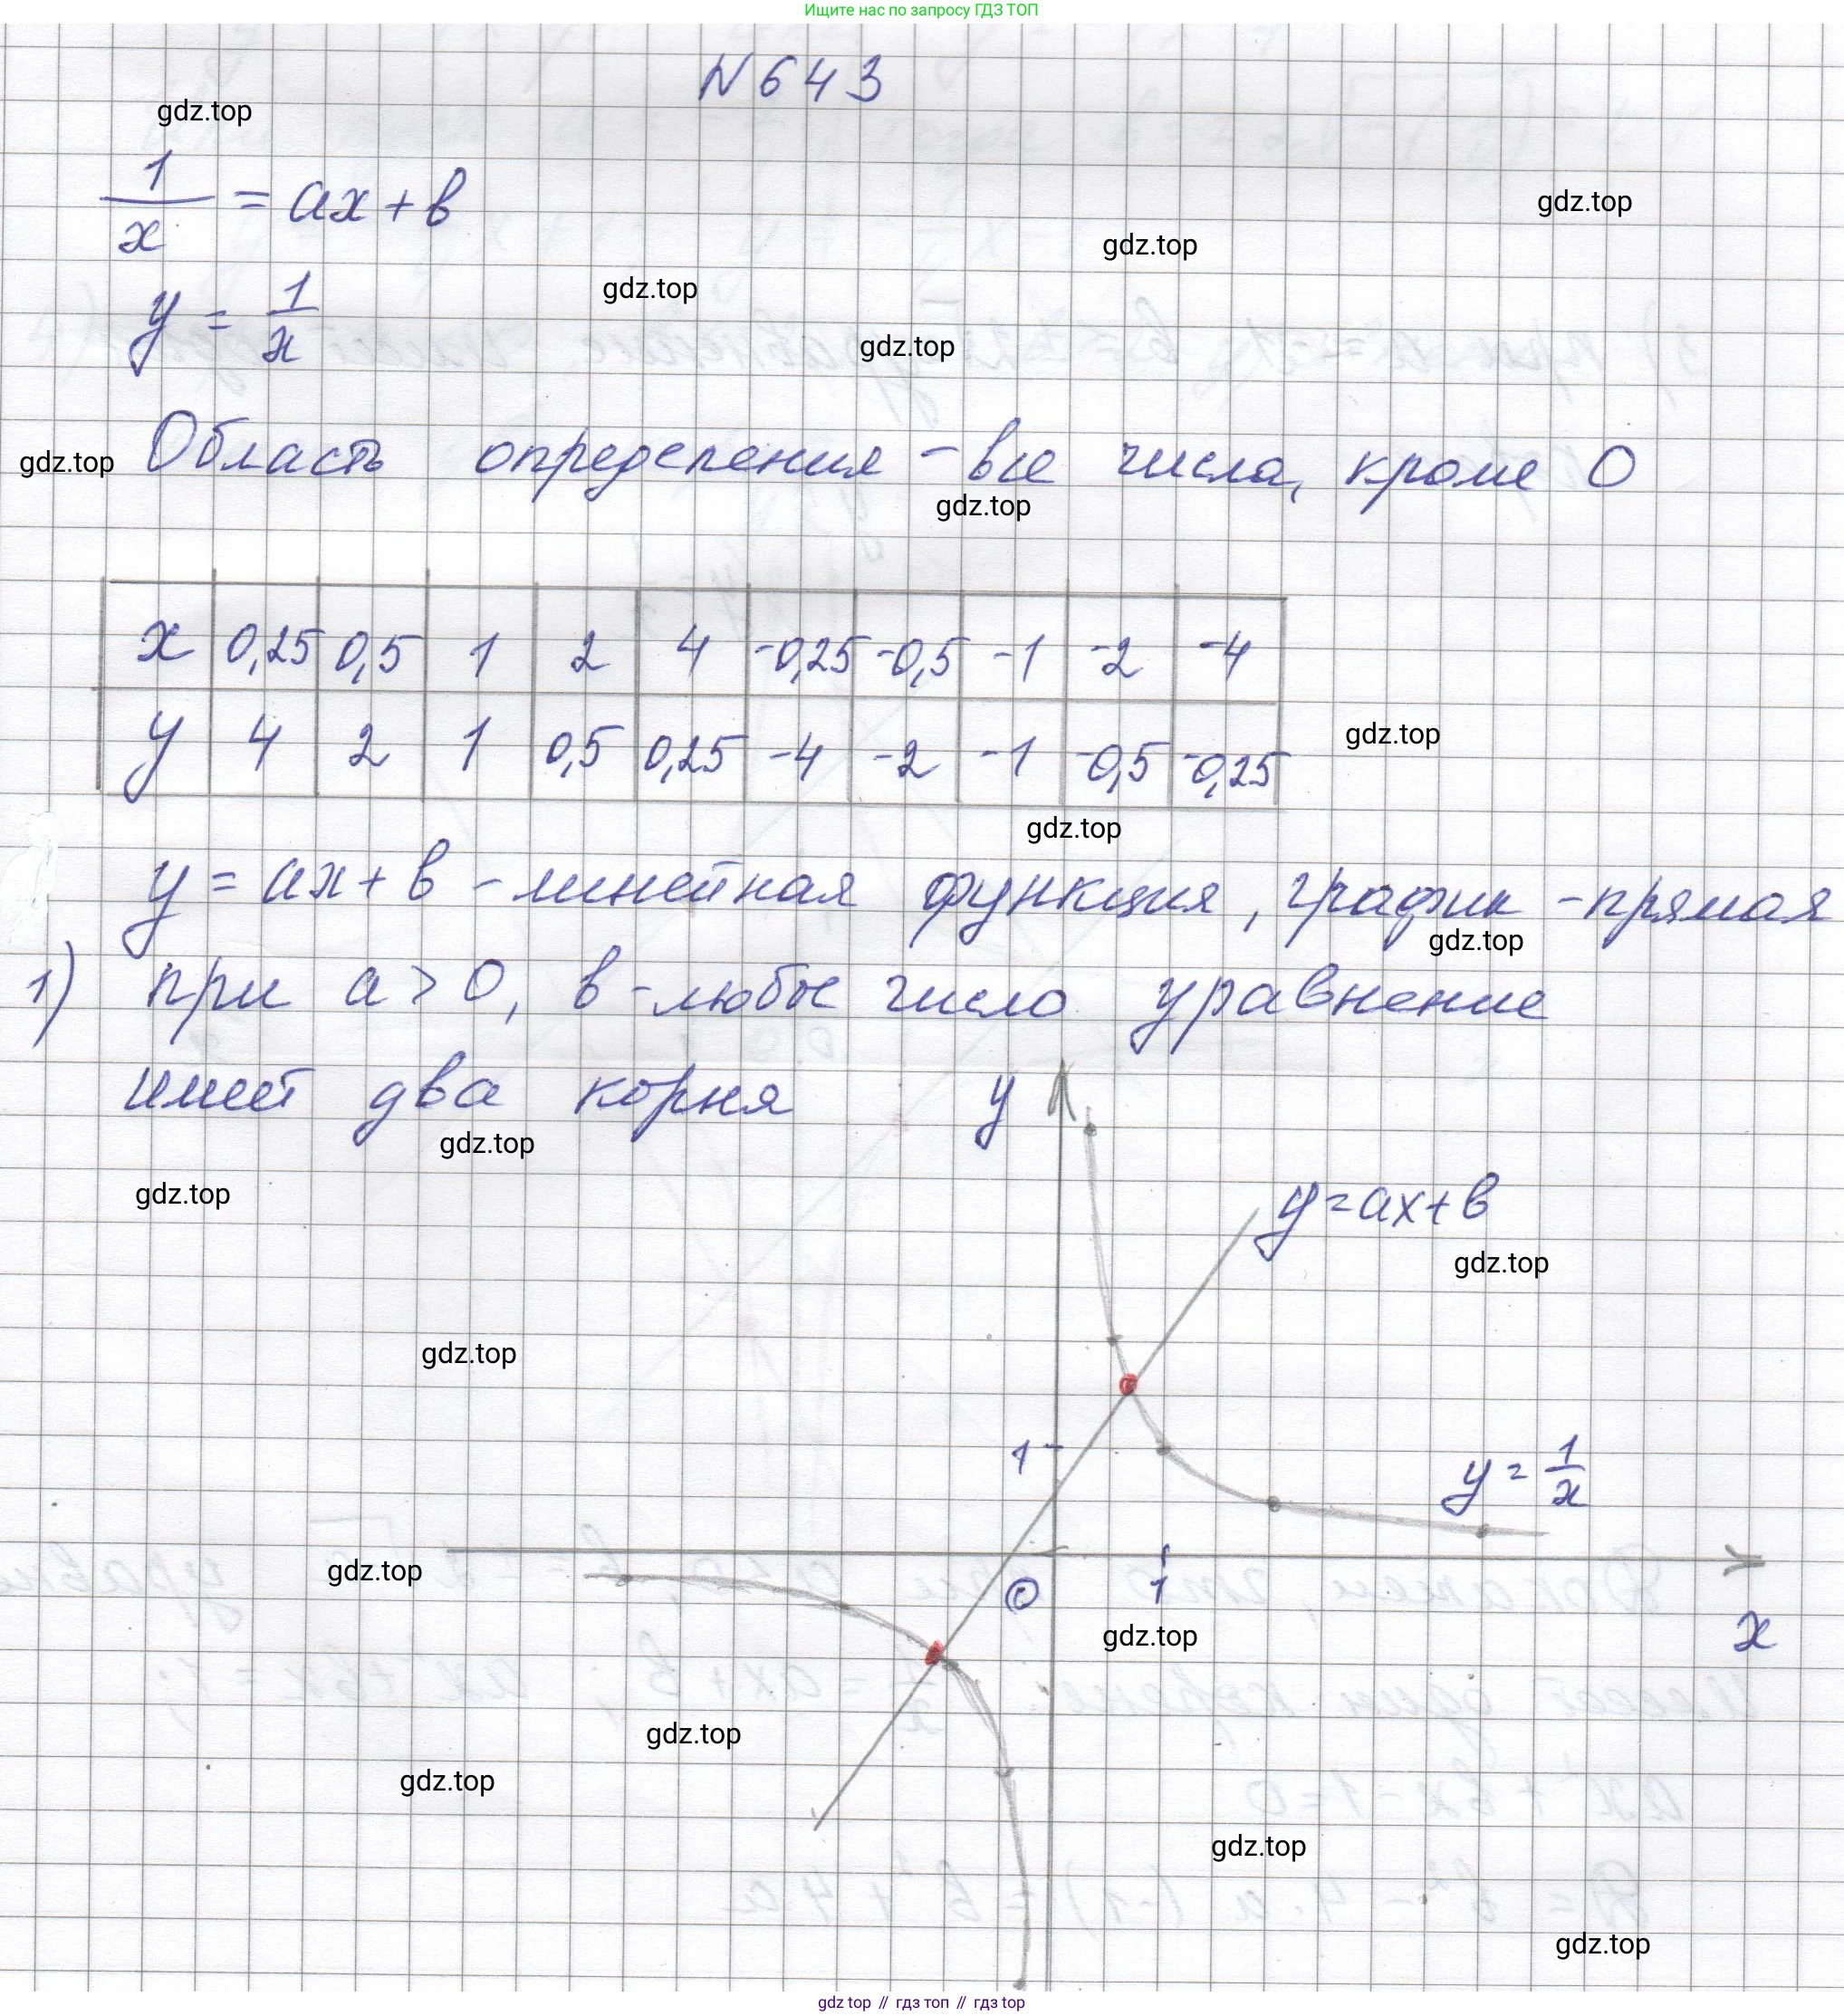 Ищите нас по запросу ГДЗ ТОП
N 643
gdz.top
1/x = ax + b
gdz.top
gdz.top
gdz.top
y = 1/x
gdz.top
Область определения - все числа, кроме 0
gdz.top
gdz.top
x 0,25 0,5 1 2 4 -0,25 -0,5 -1 -2 -4
y 4 2 1 0,5 0,25 -4 -2 -1 -0,5 -0,25
gdz.top
gdz.top
y = ax + b - линейная функция, график - прямая
gdz.top
1) при a > 0, b - любое число уравнение
имеет два корня
y
gdz.top
gdz.top
y = ax + b
gdz.top
gdz.top
1
y = 1/x
gdz.top
0 1
gdz.top
x
gdz.top
gdz.top
gdz.top
gdz.top
gdz top // гдз топ // гдз top